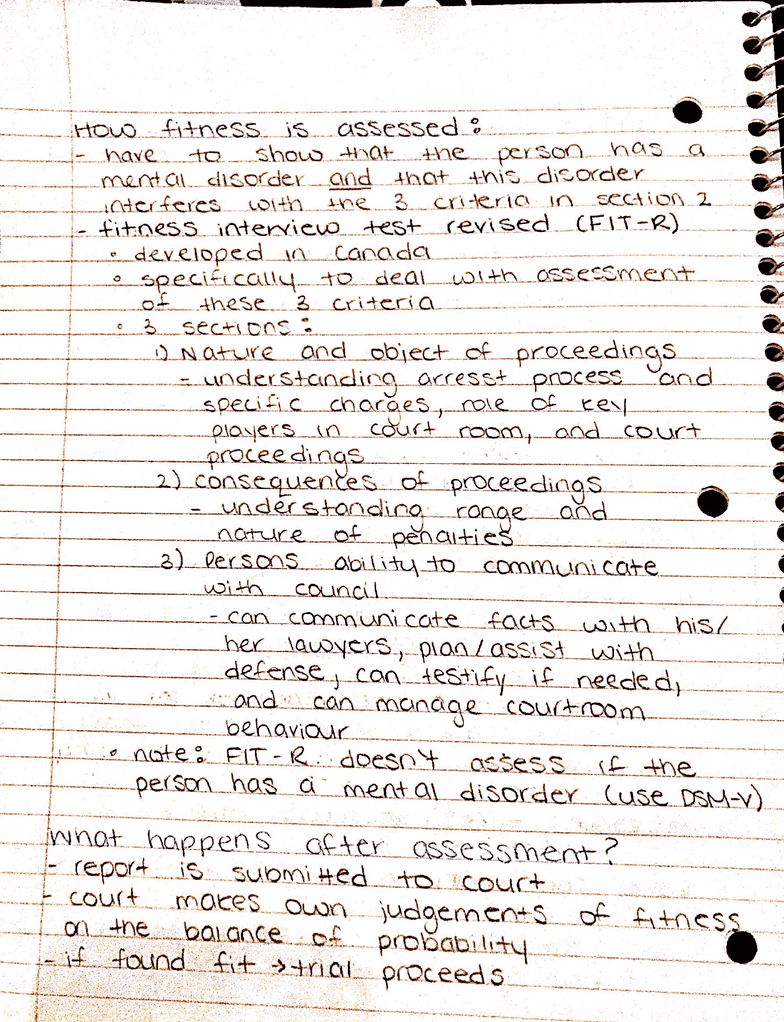 How fitness is assessed:
- have to show that the person has a
mental disorder and that this disorder
interferes with the 3 criteria in section 2
- fitness interview test revised (FIT-R)
◦ developed in Canada
◦ specifically to deal with assessment
of these 3 criteria
◦ 3 sections:
1) Nature and object of proceedings
- understanding arresst process and
specific charges, role of key
players in court room, and court
proceedings
2) consequences of proceedings
- understanding range and
nature of penalties
3) Persons ability to communicate
with council
- can communicate facts with his/
her lawyers, plan/assist with
defense, can testify if needed,
and can manage courtroom
behaviour
◦ note: FIT-R doesn't assess if the
person has a mental disorder (use DSM-V)
What happens after assessment?
- report is submitted to court
- court makes own judgements of fitness
on the balance of probability
- if found fit → trial proceeds